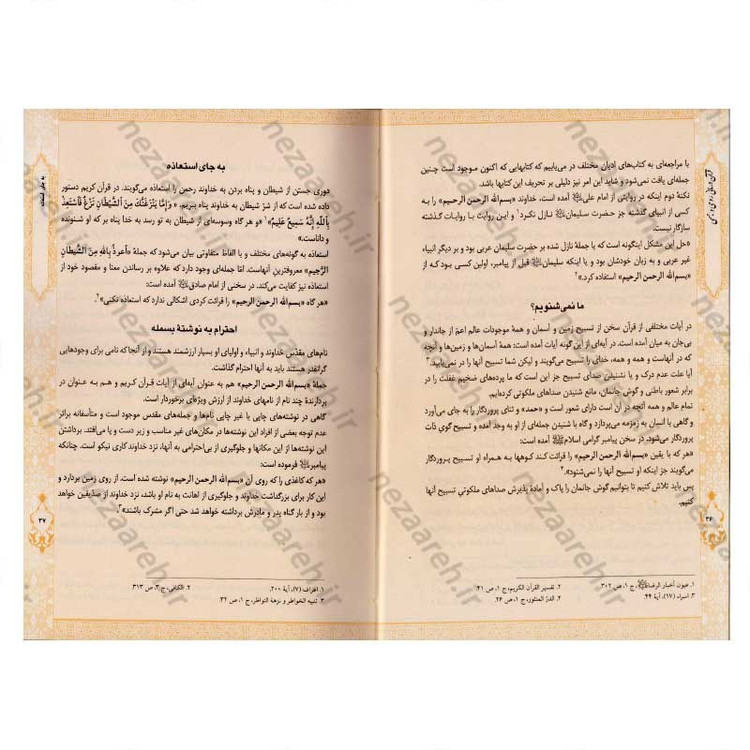 با مراجعه‌ای به کتاب‌های ادیان مختلف در می‌یابیم که کتابهایی که اکنون موجود است چنین
جمله‌ای یافت نمی‌شود و شاید این امر نیز دلیلی بر تحریف این کتابها باشد.
نکتهٔ دوم اینکه در روایتی از امام علی آمده است، خداوند «بسم الله الرحمن الرحیم» را به
کسی از انبیای گذشته جز حضرت سلیمان نازل نکرد۱ و این روایت با روایات گذشته
سازگار نیست.
«حل این مشکل اینگونه است که یا جملهٔ نازل شده بر حضرت سلیمان عربی بود و بر دیگر انبیاء
غیر عربی و به زبان خودشان بود و یا اینکه سلیمان قبل از پیامبر، اولین کسی بود که از
«بسم الله الرحمن الرحیم» استفاده کرد.»۲
ما نمی‌شنویم؟
در آیات مختلفی از قرآن سخن از تسبیح زمین و آسمان و همهٔ موجودات عالم اعم از جاندار و
بی‌جان به میان آمده است. در آیه‌ای از این گونه آیات آمده است: همهٔ آسمان‌ها و زمین‌ها و آنچه
که در آنهاست و همه و همه، خدای را تسبیح می‌گویند و لیکن شما تسبیح آنها را در نمی‌یابید.۳
آیا علت عدم درک و یا نشنیدن صدای تسبیح جز این است که ما پرده‌های ضخیم غفلت را در
برابر شعور باطنی و گوش جانمان، مانع شنیدن صداهای ملکوتی کرده‌ایم.
تمام عالم و همه آنچه در آن است دارای شعور است و «حمد» و ثنای پروردگار را به جای می‌آورد
و گاهی با انسان به زمزمه می‌پردازد و گاه با شنیدن جمله‌ای از او به وجد آمده و تسبیح گوی ذات
پروردگار می‌شود. در سخن پیامبر گرامی اسلام آمده است:
«هر که با یقین «بسم الله الرحمن الرحیم» را قرائت کند کوهها به همراه او تسبیح پروردگار
می‌گویند جز اینکه او تسبیح آنها را نمی‌شنود».۴
پس باید تلاش کنیم تا بتوانیم گوش جانمان را پاک و آمادهٔ پذیرش صداهای ملکوتی تسبیح آنها
کنیم.
۱. عیون أخبار الرضا، ج ۱، ص ۳۰۲. ۲. تفسیر القرآن الکریم، ج ۱، ص ۴۱.
۳. اسراء (۱۷)، آیهٔ ۴۴. ۴. الدرّ المنثور، ج ۱، ص ۲۶.
۳۶
به جای استعاذه
دوری جستن از شیطان و پناه بردن به خداوند رحمن را استعاذه می‌گویند. در قرآن کریم دستور
داده شده است که از شرّ شیطان به خداوند پناه ببریم. «وَإِمَّا يَنْزَغَنَّكَ مِنَ الشَّيْطَانِ نَزْغٌ فَاسْتَعِذْ
بِاللَّهِ إِنَّهُ سَمِيعٌ عَلِيمٌ»۱ «و هر گاه وسوسه‌ای از شیطان به تو رسد به خدا پناه بر که او شنونده
و داناست.»
استعاذه به گونه‌های مختلف و با الفاظ متفاوتی بیان می‌شود که جملهٔ «أعوذُ بِاللهِ مِنَ الشَّيْطانِ
الرَّجيم» معروفترین آنهاست. امّا جمله‌ای وجود دارد که علاوه بر رساندن معنا و مقصود خود از
استعاذه نیز کفایت می‌کند. در سخنی از امام صادق آمده است:
«هر گاه «بسم الله الرحمن الرحیم» را قرائت کردی اشکالی ندارد که استعاذه نکنی».۲
احترام به نوشتهٔ بسمله
نام‌های مقدّس خداوند و انبیاء و اولیای او بسیار ارزشمند هستند و از آنجا که نامی برای وجودهایی
گرانقدر هستند باید به آنها احترام گذاشت.
جملهٔ «بسم الله الرحمن الرحیم» هم به عنوان آیه‌ای از آیات قرآن کریم و هم به عنوان در
بردارندهٔ چند نام از نامهای خداوند از ارزش ویژه‌ای برخوردار است.
گاهی در نوشته‌های چاپی یا غیر چاپی نام‌ها و جمله‌های مقدس موجود است و متأسفانه براثر
عدم توجه بعضی از افراد این نوشته‌ها در مکان‌های غیر مناسب و زیر دست و پا می‌افتد. برداشتن
این نوشته‌ها از این مکانها و جلوگیری از بی‌احترامی به آنها، نزد خداوند کاری نیکو است. چنانکه
پیامبر فرموده است:
«هر که کاغذی را که روی آن «بسم الله الرحمن الرحیم» نوشته شده است، از روی زمین بردارد و
این کار برای بزرگداشت خداوند و جلوگیری از اهانت به نام او باشد، نزد خداوند از صدّیقین خواهد
بود و از بار گناه پدر و مادرش برداشته خواهد شد حتی اگر مشرک باشند».۳
۱. اعراف (۷)، آیهٔ ۲۰۰. ۲. الکافی، ج ۳، ص ۳۱۳.
۳. تنبیه الخواطر و نزهة النواظر، ج ۱، ص ۳۲.
۳۷
nezaareh.ir